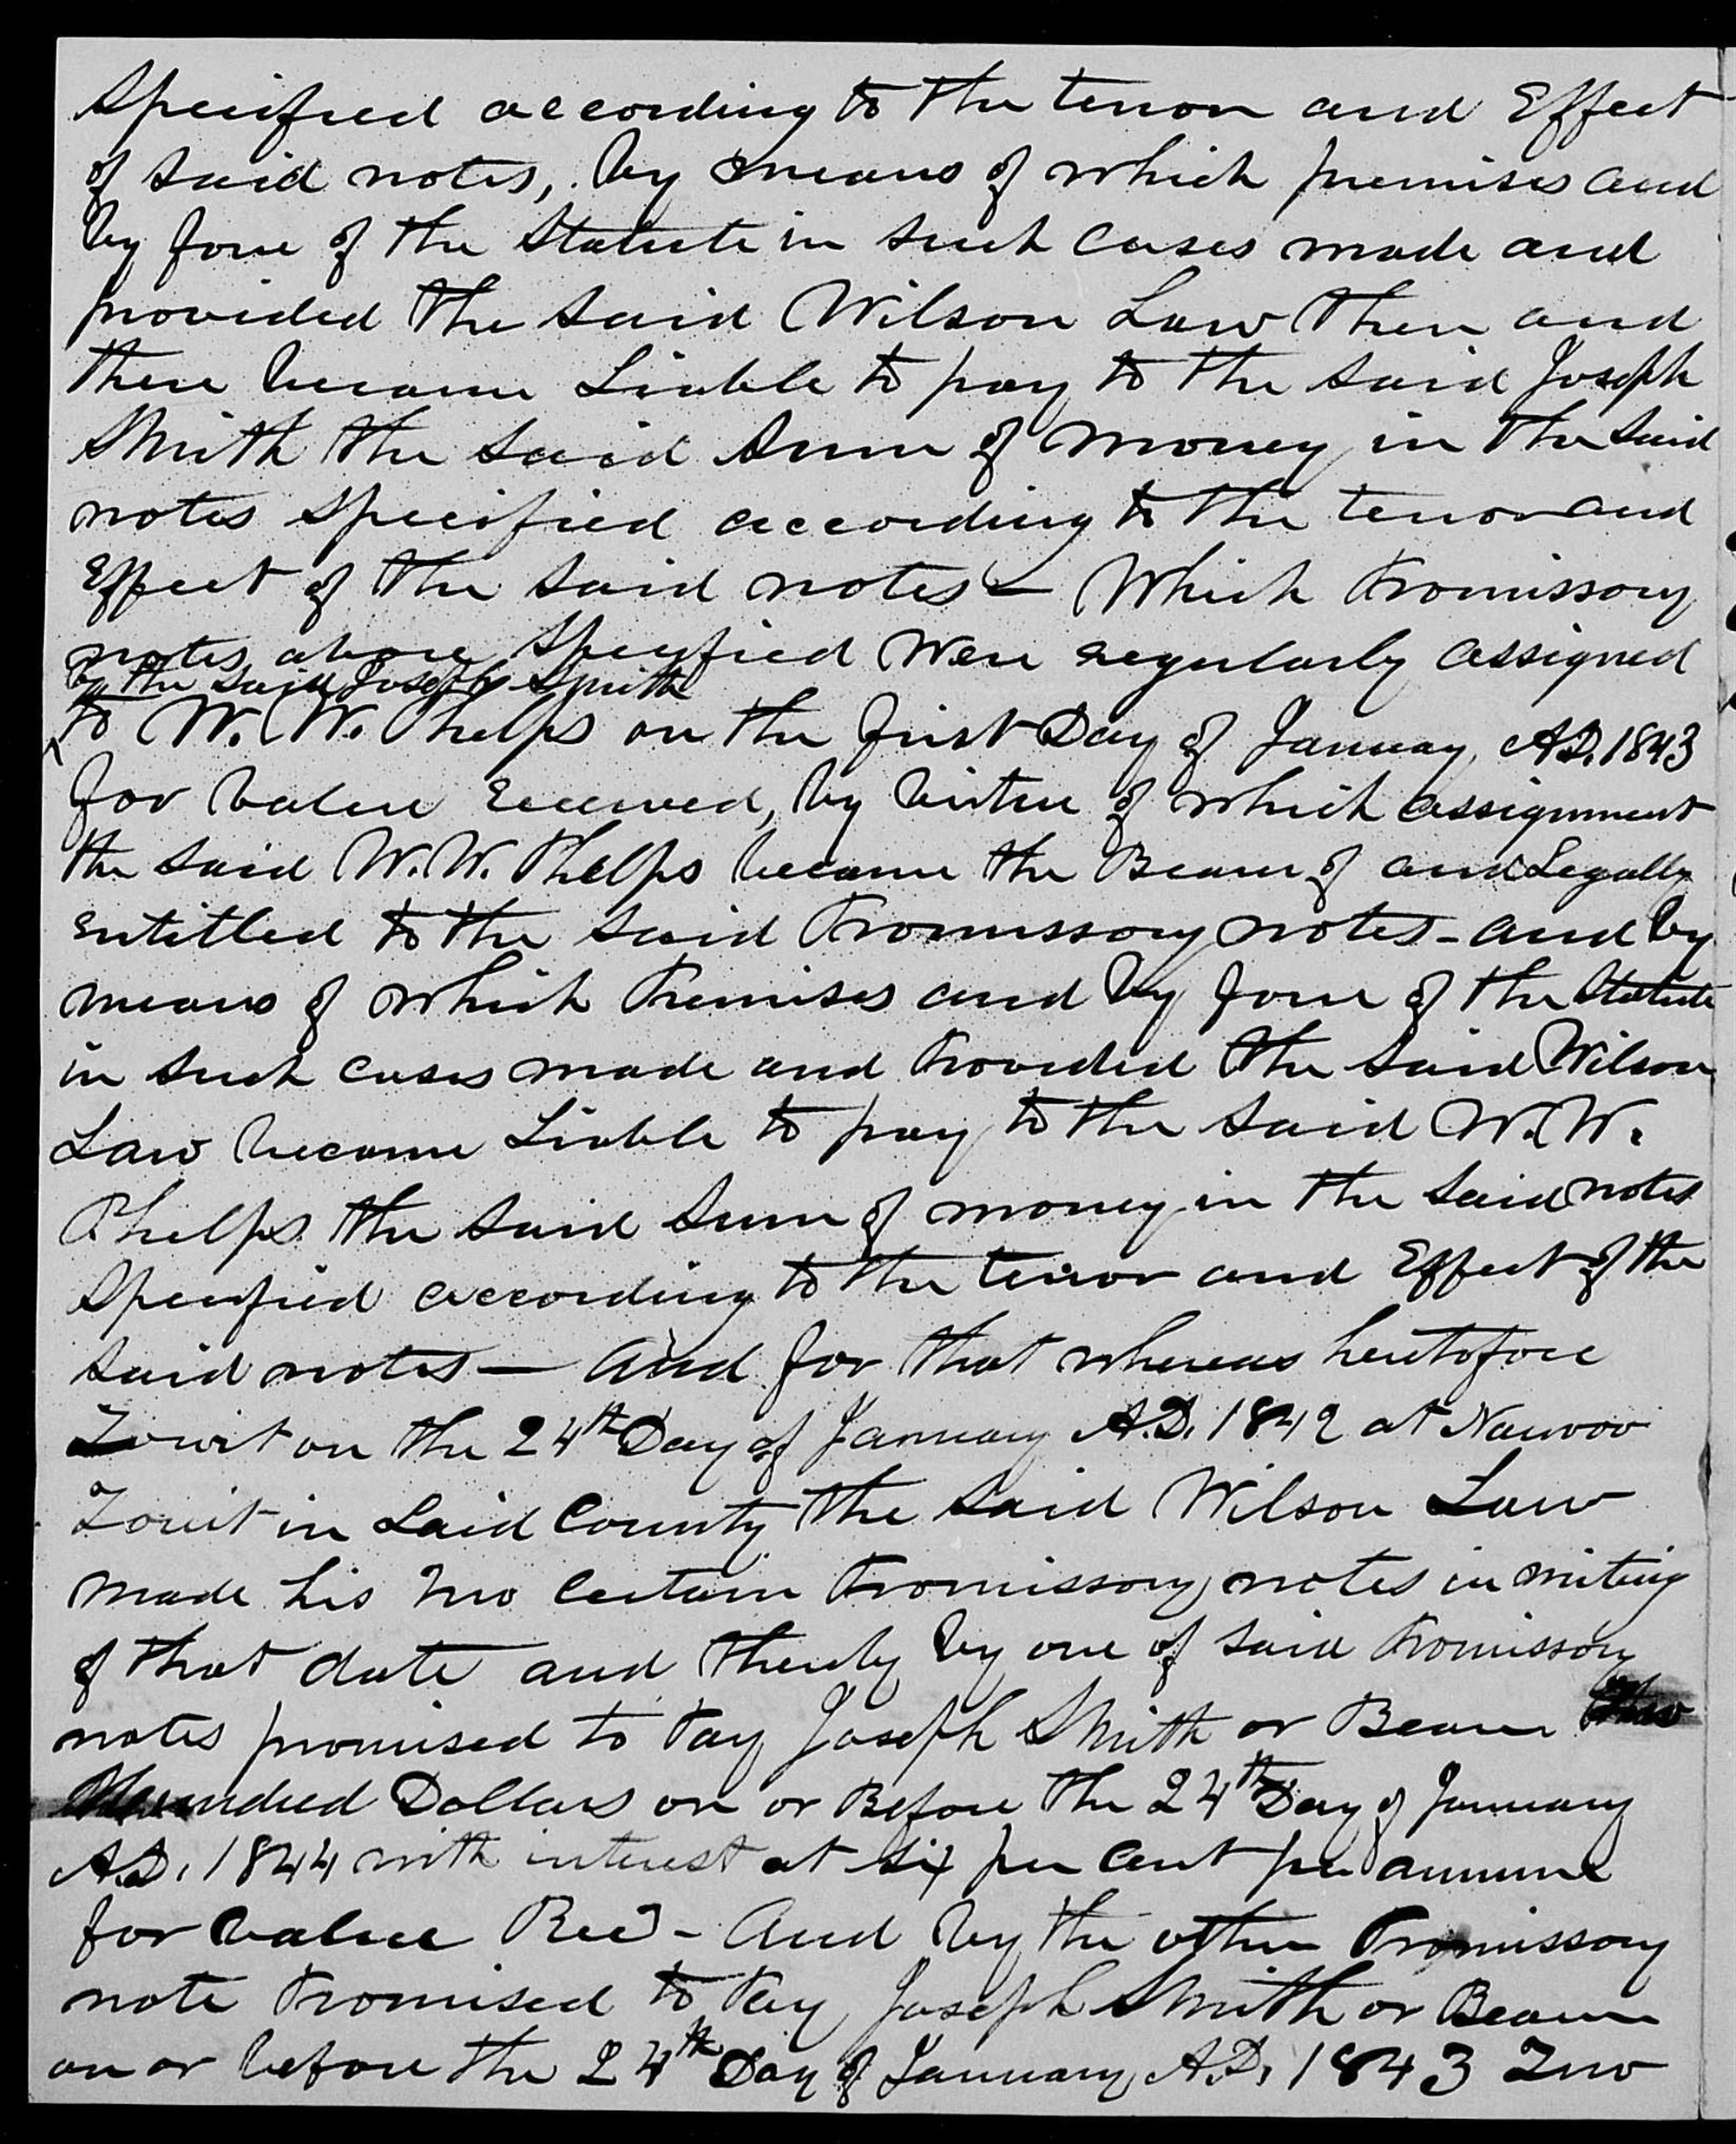 Specified according to the tenor and Effect
of said notes, by means of which premises and
by force of the Statute in such cases made and
provided the said Wilson Law then and
there became Liable to pay to the said Joseph
Smith the said Sum of money in the said
notes specified according to the tenor and
Effect of the said notes — Which Promissory
notes above specified were regularly assigned
by the said Joseph Smith
to W. W. Phelps on the first Day of January, A.D. 1843
for value received, by virtue of which assignment
the said W. W. Phelps became the Bearer of and Legally
entitled to the said Promissory notes - and by
means of which Premises and by force of the Statute
in such cases made and Provided the said Wilson
Law became Liable to pay to the said W. W.
Phelps the said Sum of money in the said notes
specified according to the tenor and Effect of the
said notes — And for that whereas heretofore
Towit on the 24th Day of January A.D. 1842 at Nauvoo
Towit in said County the said Wilson Law
made his two certain Promissory notes in writing
of that date and thereby by one of said Promissory
notes promised to Pay Joseph Smith or Bearer
Hundred Dollars on or Before the 24th Day of January
A.D. 1844 with interest at six per cent per annum
for value Recd - And by the other Promissory
note Promised to Pay Joseph Smith or Bearer
on or before the 24th Day of January A.D. 1843 Two